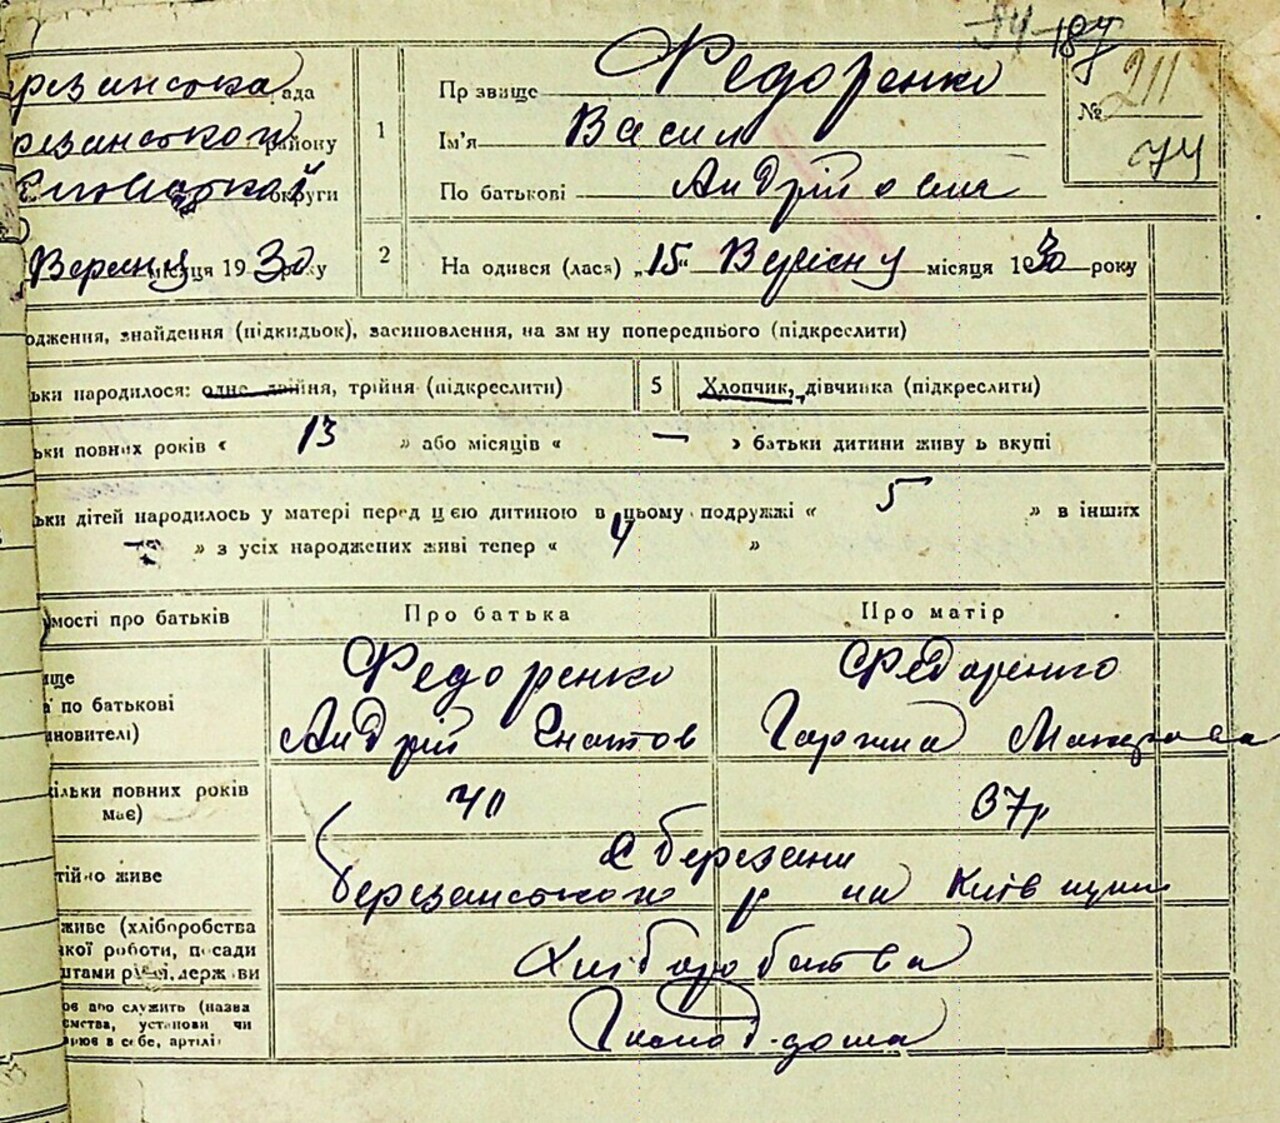 187
№ 211
74
резанська ада
резанського району
округи
1
Пр звище Федоренко
Ім'я Васил
По батькові Андрійович
Вересня місяця 1930 року
2
На одився (лася) „15“ Вересня місяця 1930 року
одження, знайдення (підкидьок), засиновлення, на зм ну попереднього (підкреслити)
ьки народилося: одне двійня, трійня (підкреслити)
5
Хлопчик, дівчинка (підкреслити)
ьки повних років « 13 » або місяців « — » батьки дитини живу ь вкупі
ьки дітей народилось у матері перед цією дитиною в цьому подружжі « 5 » в інших
» з усіх народжених живі тепер « 4 »
мості про батьків
Про батька
Про матір
ище
а по батькові
новителі)
Федоренко
Андрій Гнатов
Федоренко
Макарова
ільки повних років
має)
40
37р
тійно живе
с березани
березанського р на Київщини
живе (хліборобства
якої роботи, посади
штами рілі, держ ви
Хліборобства
ює або служить (назва
ємства, установи чи
рює в себе, артілі)
дома